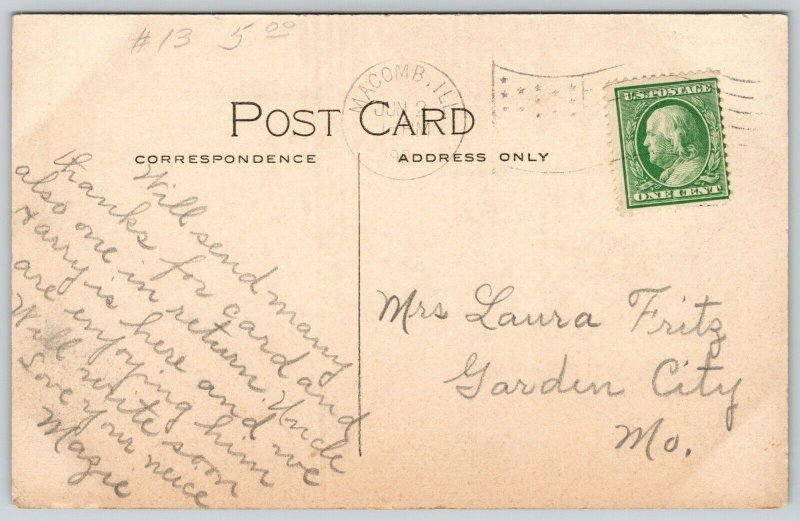 #13 5 00
MACOMB, ILL
JUN 2
U.S. POSTAGE
ONE CENT
POST CARD
CORRESPONDENCE
ADDRESS ONLY
Will send many
thanks for card and
also one in return. Uncle
Harry is here and we
are enjoying him
Will write soon
Love your neice
Mazie
Mrs Laura Fritz
Garden City
Mo.